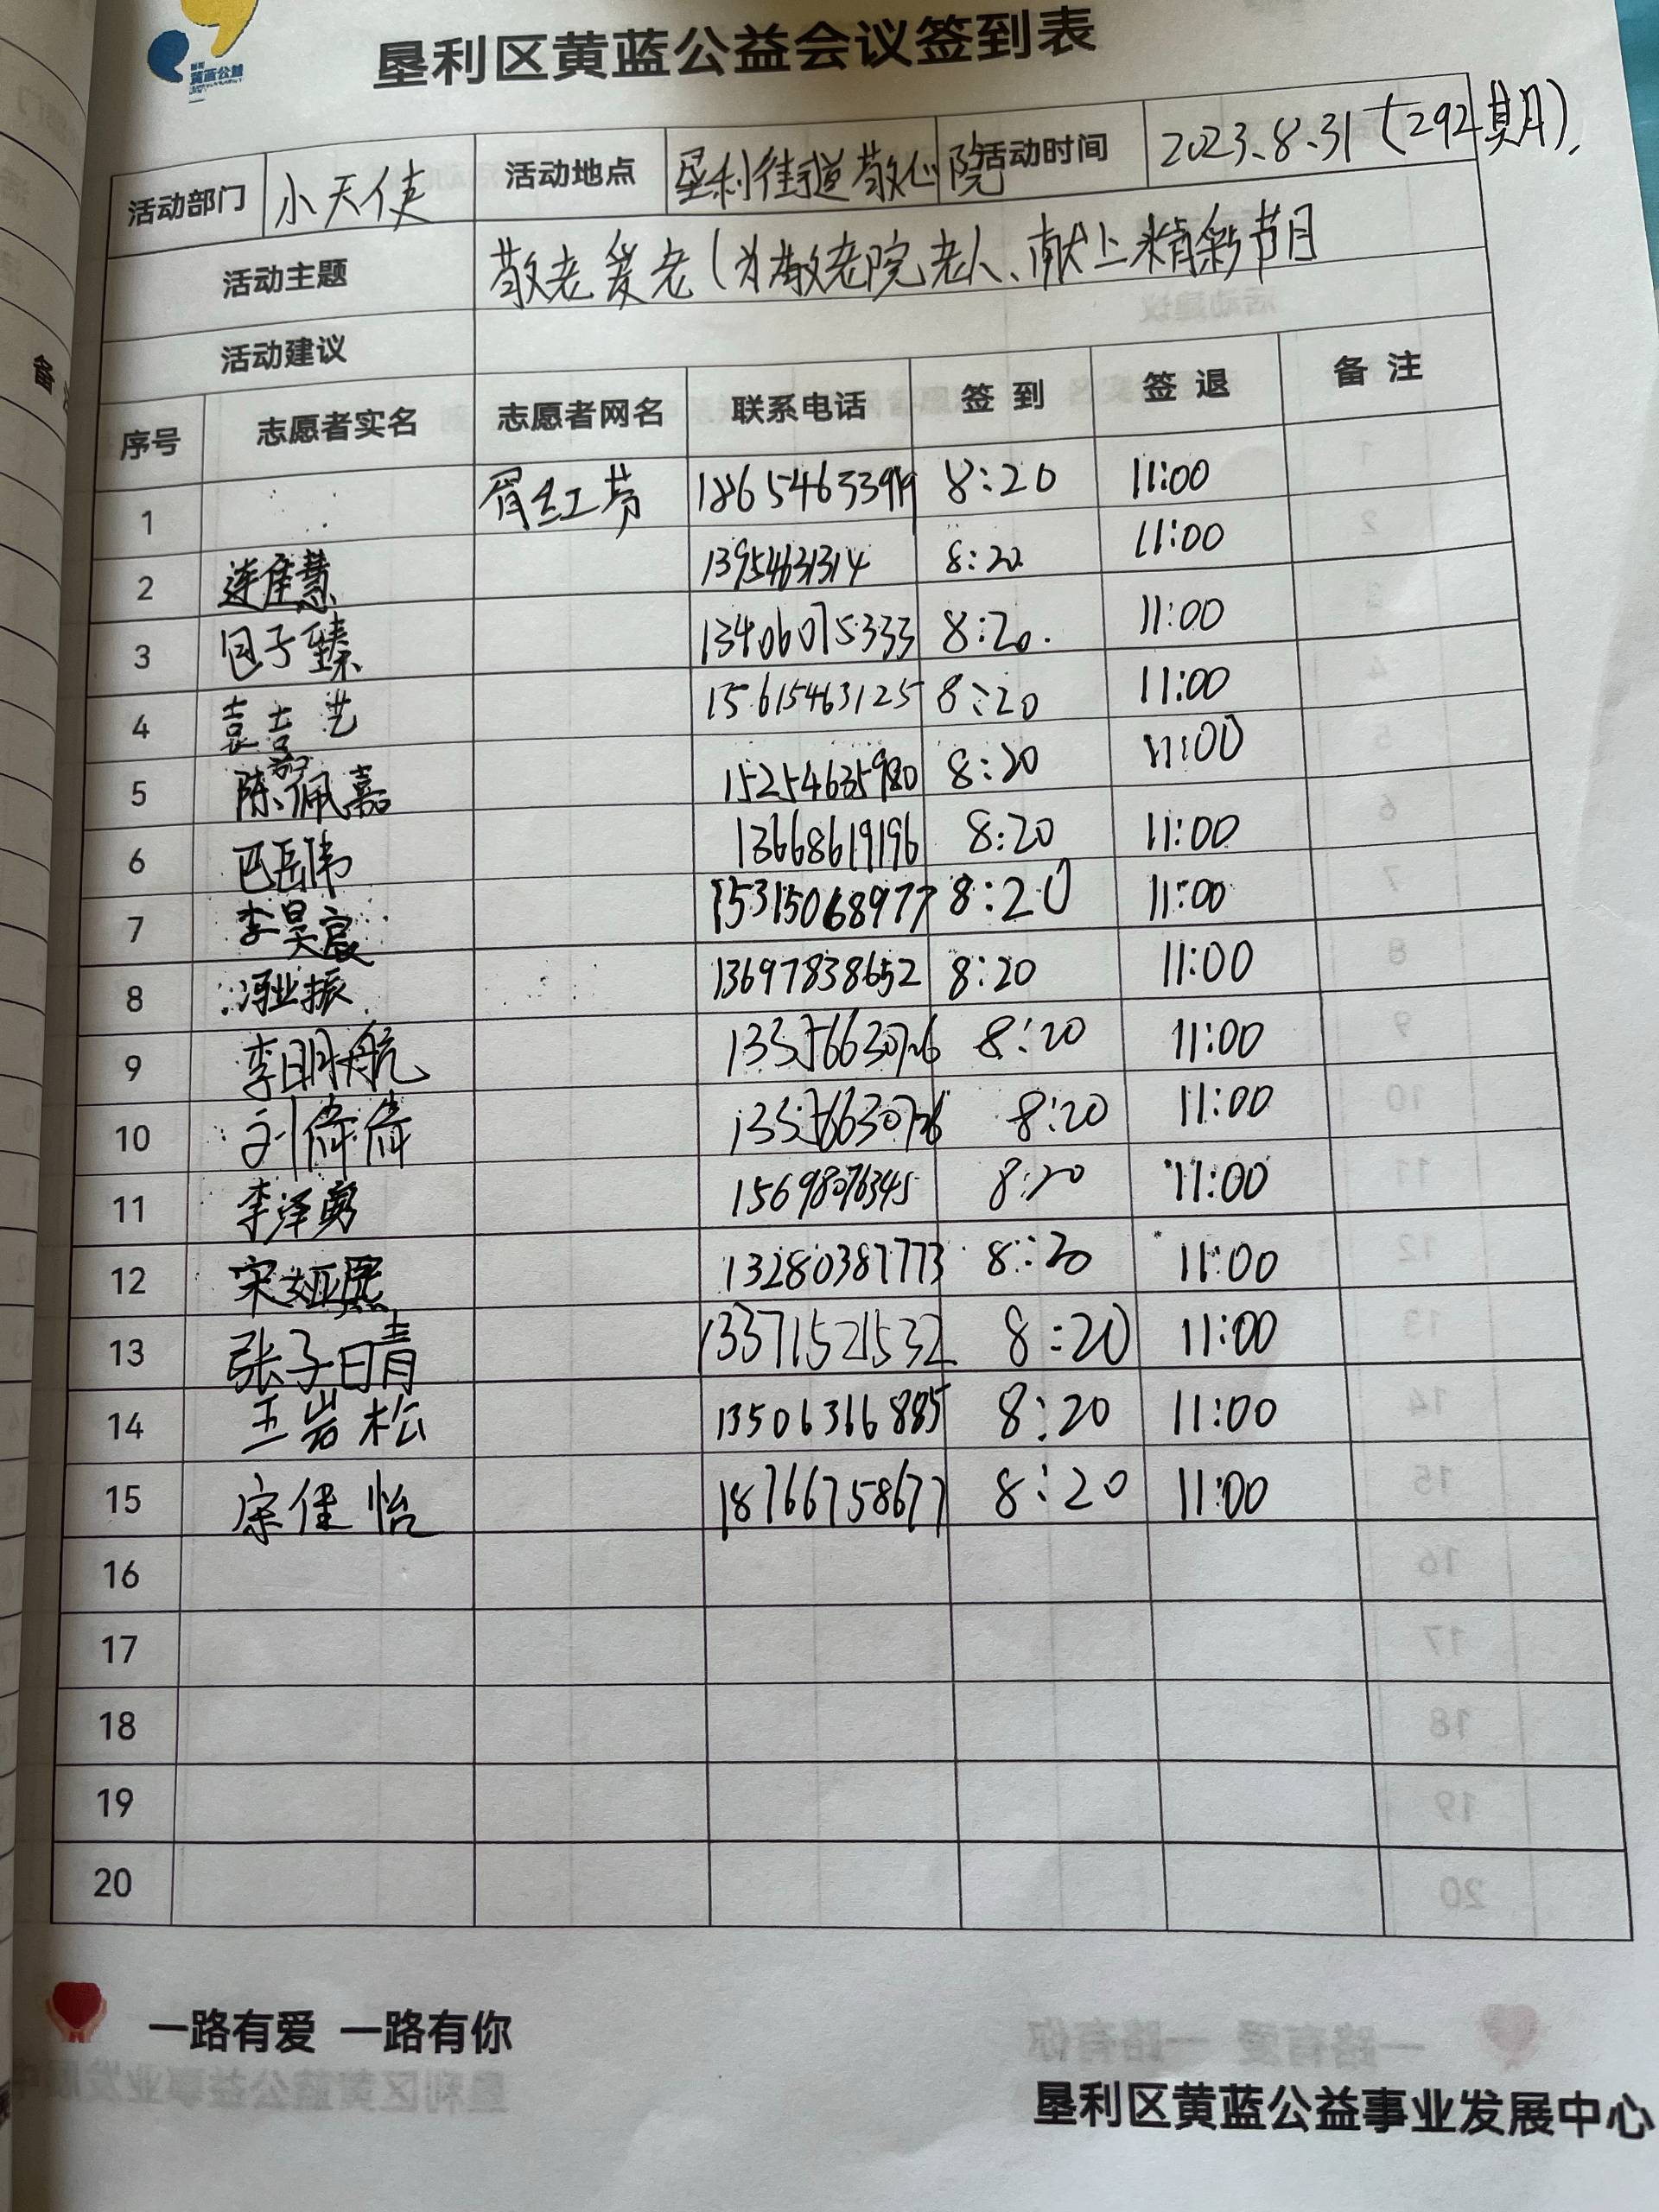 黄蓝公益
垦利区黄蓝公益会议签到表
活动部门 小天使 活动地点 垦利街道敬心院 活动时间 2023.8.31（292期）.
活动主题 敬老爱老（为敬老院老人、献上精彩节目
活动建议
序号 志愿者实名 志愿者网名 联系电话 签 到 签 退 备 注
1 胥红芳 8:20 11:00
2 连佳慧 13954631314 8:20 11:00
3 包子臻 13406075333 8:20. 11:00
4 袁嘉艺 15615463125 8:20 11:00
5 陈佩嘉 15254635980 8:20 11:00
6 巴岳伟 13668619196 8:20 11:00
7 李昊宸 15315068977 8:20 11:00
8 冯业振 13697838652 8:20 11:00
9 李明航 8:20 11:00
10 刘倚倚 8:20 11:00
11 李泽勇 15698076345 8:20 11:00
12 宋娅熙 13280387773 8:20 11:00
13 张子晴 13371521532 8:20 11:00
14 王岩松 13506366885 8:20 11:00
15 宗佳怡 18766758677 8:20 11:00
16
17
18
19
20
一路有爱 一路有你
垦利区黄蓝公益事业发展中心